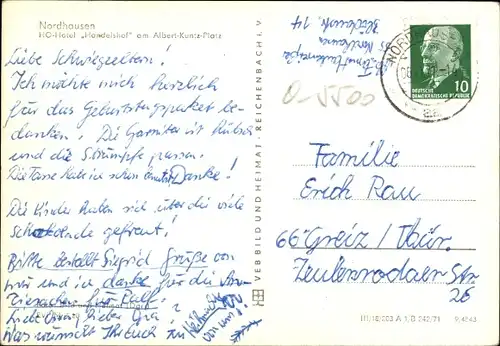 Nordhausen
HO-Hotel „Handelshof" am Albert-Kuntz-Platz
Liebe Schwiegereltern!
Ich möchte mich herzlich
für das Geburtstagspaket be-
danken. Die Garnitur ist hübsch
und die Strümpfe passen.
Die Tasse habe ich schon Danke!
Die Kinder haben sich über die viele
Schokolade gefreut!
Bitte bestellt Sigrid Grüße von
mir und ich danke für die
Liebe lieber
Was wünscht Ihr Euch zu
Weihnachten
von uns
VEB BILD UND HEIMAT · REICHENBACH I. V
Nordhausen
14
NORDHAUSEN
DEUTSCHE
DEMOKRATISCHE REPUBLIK
10
0-5500
Familie
Erich Rau
66 Greiz / Thür.
Zeulenrodaer Str.
26
III/18/203 A 1/B 242/71